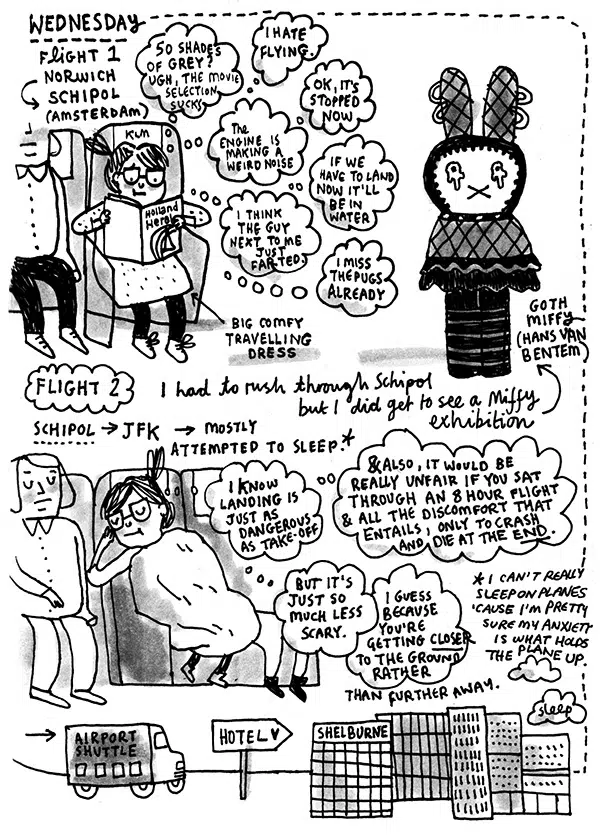 WEDNESDAY
FLIGHT 1
NORWICH
SCHIPOL
(AMSTERDAM)
50 SHADES
OF GREY?
UGH, THE MOVIE
SELECTION
SUCKS
I HATE
FLYING.
OK, IT'S
STOPPED
NOW
The
ENGINE IS
MAKING A
WEIRD NOISE
IF WE
HAVE TO LAND
NOW IT'LL
BE IN
WATER
I THINK
THE GUY
NEXT TO ME
JUST
FARTED
I MISS
THE PUGS
ALREADY
KLM
Holland
Herald
BIG COMFY
TRAVELLING
DRESS
GOTH
MIFFY
(HANS VAN
BENTEM)
FLIGHT 2
I had to rush through Schipol
but I did get to see a Miffy
exhibition
SCHIPOL → JFK → MOSTLY
ATTEMPTED TO SLEEP.*
I KNOW
LANDING IS
JUST AS
DANGEROUS
AS TAKE-OFF
& ALSO, IT WOULD BE
REALLY UNFAIR IF YOU SAT
THROUGH AN 8 HOUR FLIGHT
& ALL THE DISCOMFORT THAT
ENTAILS, ONLY TO CRASH
AND DIE AT THE END.
BUT IT'S
JUST SO
MUCH LESS
SCARY.
I GUESS
BECAUSE
YOU'RE
GETTING CLOSER
TO THE GROUND
RATHER
THAN FURTHER AWAY.
* I CAN'T REALLY
SLEEP ON PLANES
'CAUSE I'M PRETTY
SURE MY ANXIETY
IS WHAT HOLDS
THE PLANE UP.
sleep
AIRPORT
SHUTTLE
HOTEL
SHELBURNE